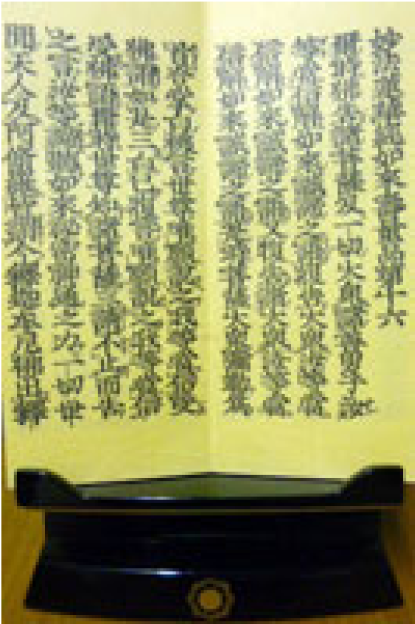 妙法蓮華經如來壽量品第十六
爾時佛告諸菩薩及一切大衆諸善男子汝
等當信解如來誠諦之語復告大衆汝等當
信解如來誠諦之語又復告諸大衆汝等當
信解如來誠諦之語是時菩薩大衆彌勒爲
首合掌白佛言世尊唯願說之我等當信受
佛語如是三白已復言唯願說之我等當信
受佛語爾時世尊知諸菩薩三請不止而告
之言汝等諦聽如來祕密神通之力一切世
間天人及阿修羅皆謂今釋迦牟尼佛出釋